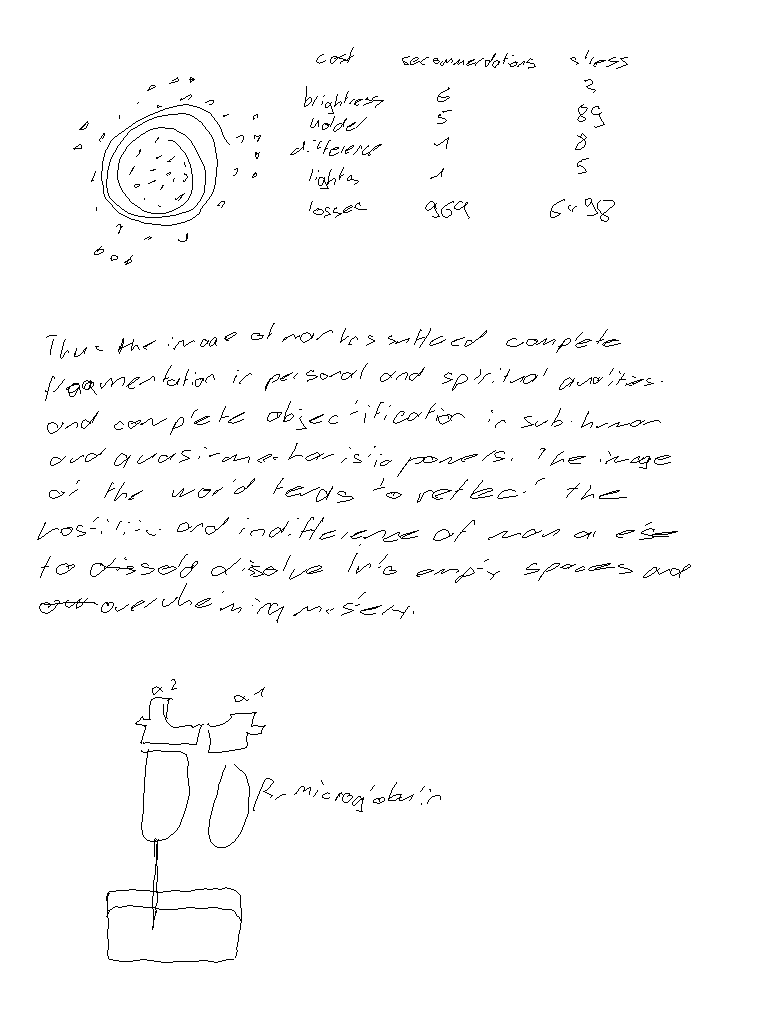 cost recommendations stress
brightness 6 2
udder 5 89
difference 1 8
lights 1 5
losses 969 6498
Thus the image of man has suffered complete
fragmentation in personal and spiritual qualities
and complete objectification in sub-human
and quasi-mechanistic powers. The image
of the world tends to reflect the
hostility and indifference of man or else
to dissolve into empty spaces and
overwhelming mystery.
α2 α1
microglobulin